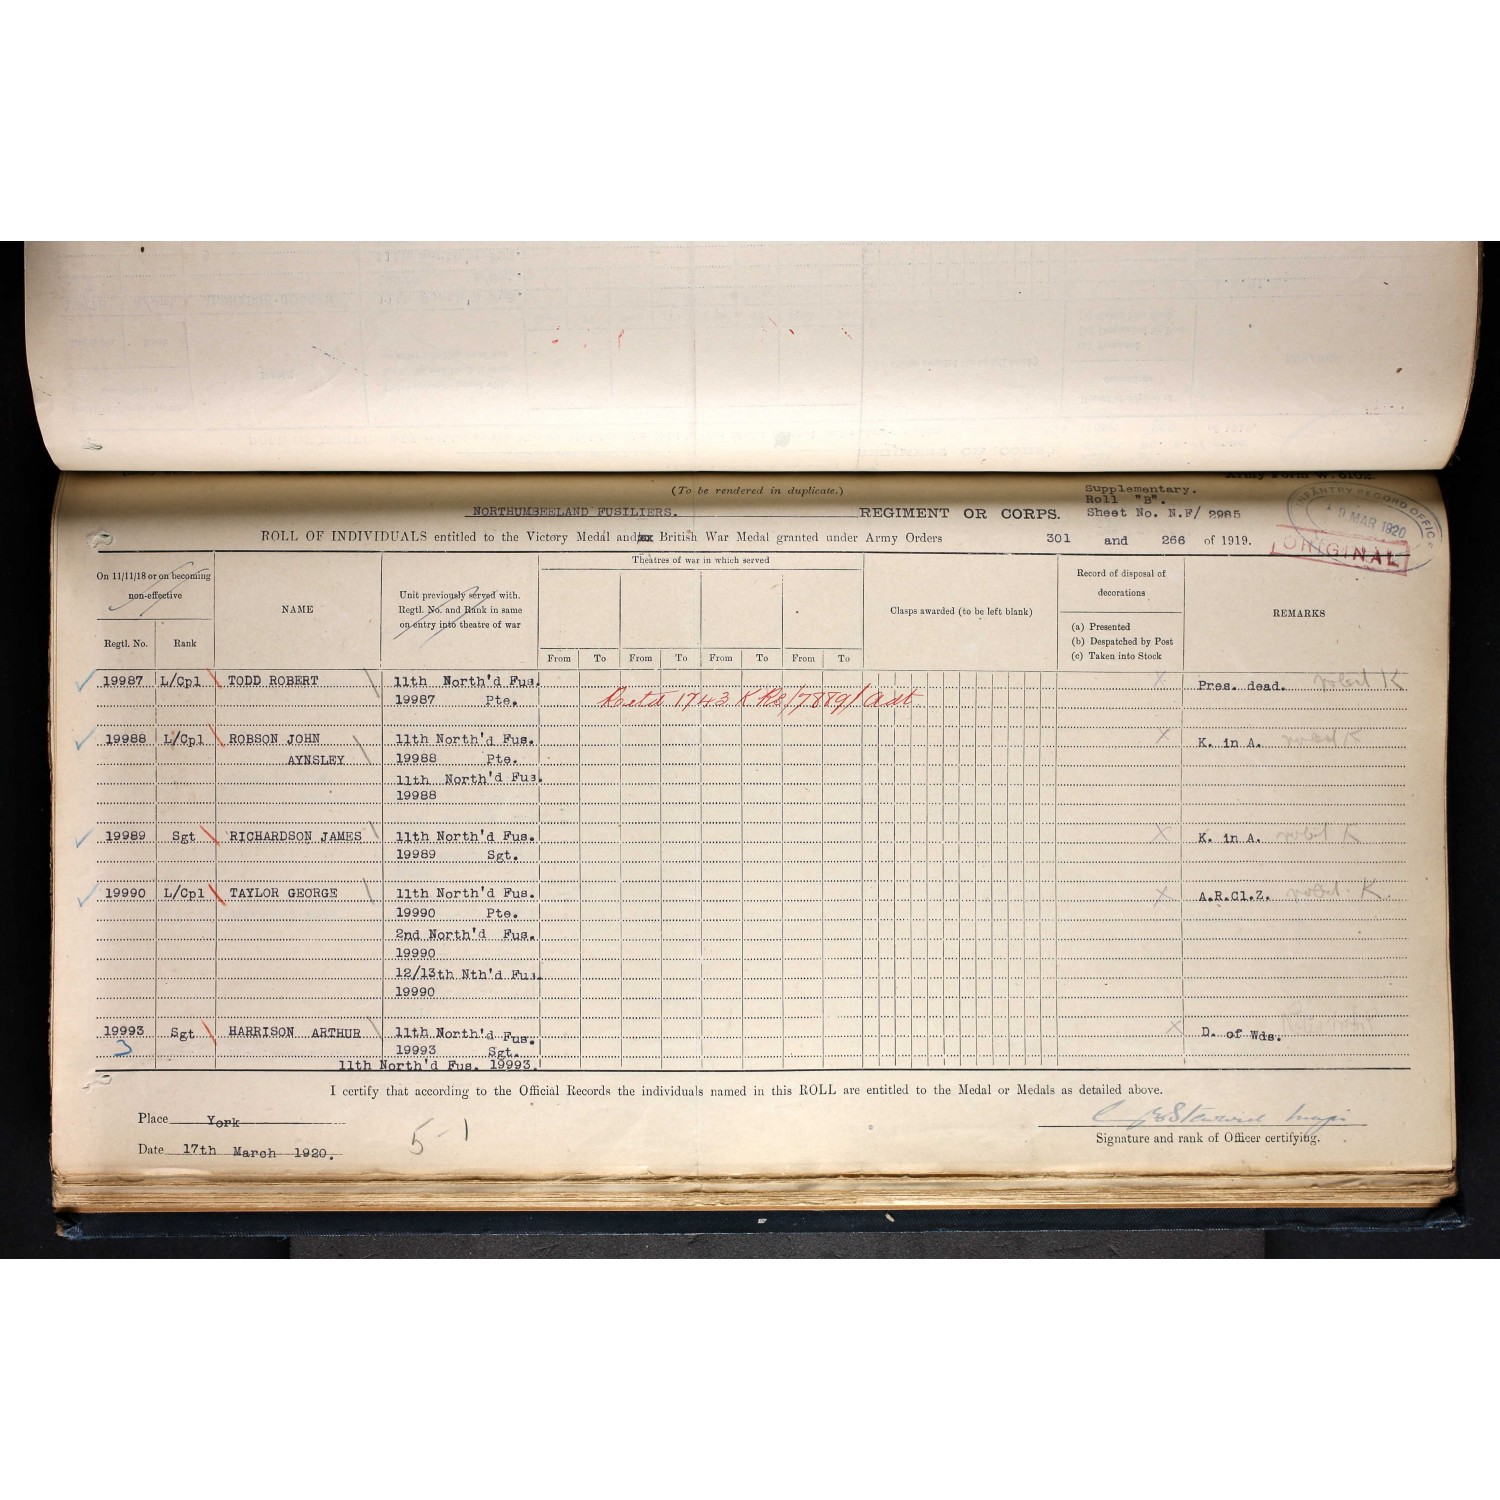 (To be rendered in duplicate.)
Supplementary.
Roll "B".
NORTHUMBEELAND FUSILIERS. REGIMENT OR CORPS. Sheet No. N.F/ 2985
INFANTRY RECORD OFFICE
MAR 1920
ORIGINAL
ROLL OF INDIVIDUALS entitled to the Victory Medal and British War Medal granted under Army Orders 301 and 266 of 1919.
On 11/11/18 or on becoming non-effective
Regtl. No. Rank
NAME
Unit previously served with.
Regtl. No. and Rank in same
on entry into theatre of war
Theatres of war in which served
From To From To From To From To
Clasps awarded (to be left blank)
Record of disposal of
decorations
(a) Presented
(b) Despatched by Post
(c) Taken into Stock
REMARKS
19987 L/Cpl TODD ROBERT 11th North'd Fus. X Pres. dead.
19987 Pte. 1743
19988 L/Cpl ROBSON JOHN 11th North'd Fus. X K. in A.
AYNSLEY 19988 Pte.
11th North'd Fus.
19988
19989 Sgt RICHARDSON JAMES 11th North'd Fus. X K. in A.
19989 Sgt.
19990 L/Cpl TAYLOR GEORGE 11th North'd Fus. X A.R.Cl.Z.
19990 Pte.
2nd North'd Fus.
19990
12/13th Nth'd Fus.
19990
19993 Sgt HARRISON ARTHUR 11th North'd Fus. X D. of Wds.
3 19993 Sgt.
11th North'd Fus. 19993.
I certify that according to the Official Records the individuals named in this ROLL are entitled to the Medal or Medals as detailed above.
Place York
Date 17th March 1920.
5-1
Signature and rank of Officer certifying.